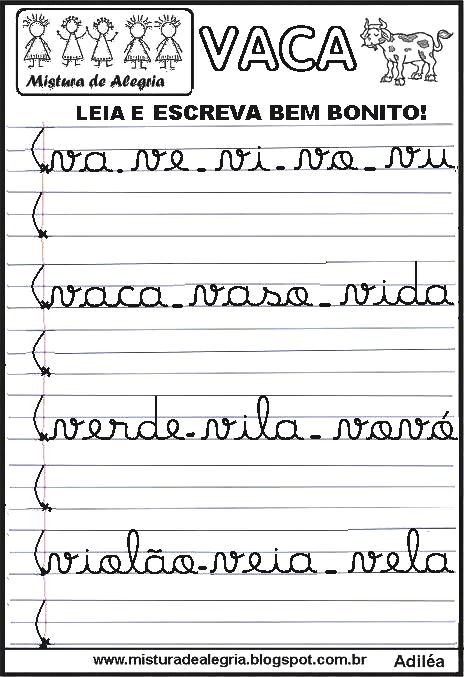 Mistura de Alegria
VACA
LEIA E ESCREVA BEM BONITO!
va - ve - vi - vo - vu
vaca - vaso - vida
verde - vila - vovó
violão - veia - vela
www.misturadealegria.blogspot.com.br
Adiléa